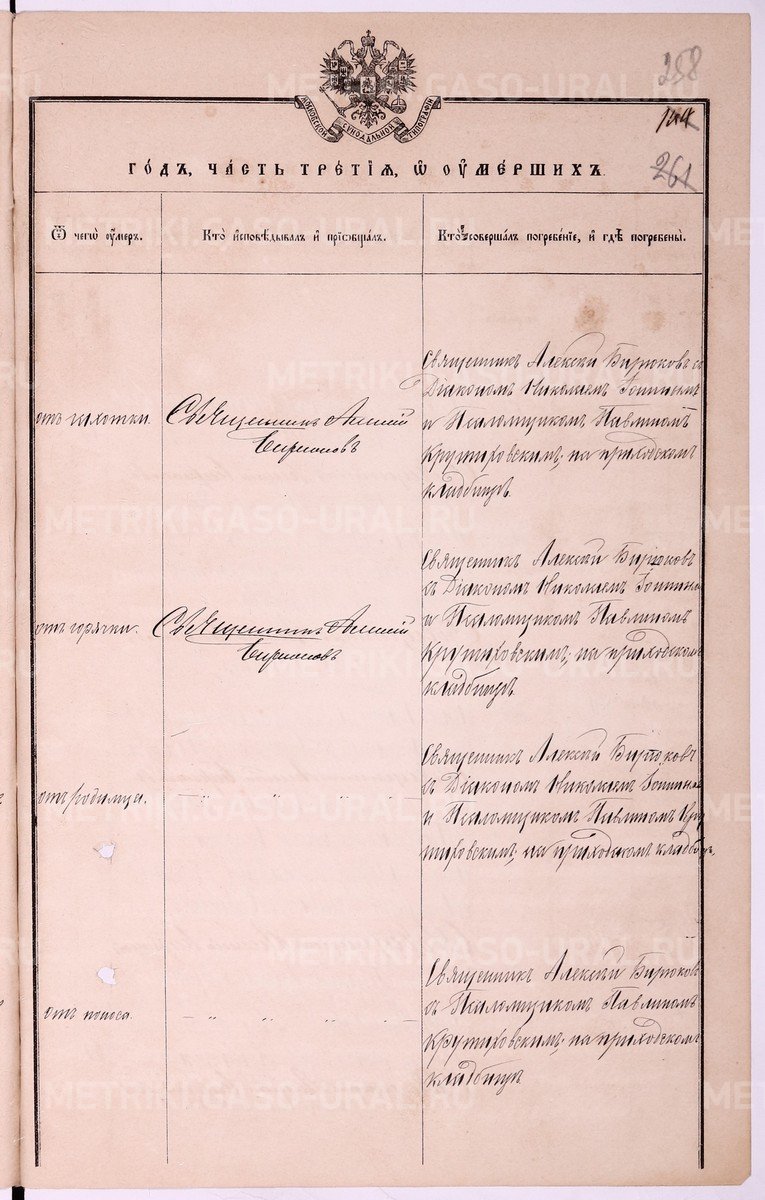 МОСКОВСКОЙ СѴНОДАЛЬНОЙ ТИПОГРАФІИ
258
144
261
ГО́ДЪ, ЧА́СТЬ ТРЕ́ТІѦ, Ѡ҆ ОУ҆МЕ́РШИХЪ.
Ѿ чегѡ̀ оу҆́меръ.
Кто̀ и҆сповѣ́дывалъ и҆ прїѻбща́лъ.
Кто̀ соверша́лъ погребе́нїе, и҆ гдѣ̀ погребены̀.
отъ чахотки.
Священникъ
Священникъ Алексѣй Бирюковъ съ
Діакономъ Николаемъ
и Псаломщикомъ Павлиномъ
Крутиховскимъ; на приходскомъ
кладбищѣ.
отъ горячки.
Священникъ
Священникъ Алексѣй Бирюковъ
съ Діакономъ Николаемъ
и Псаломщикомъ Павлиномъ
Крутиховскимъ; на приходскомъ
кладбищѣ.
отъ родимца.
Священникъ Алексѣй Бирюковъ
съ Діакономъ Николаемъ
и Псаломщикомъ Павлиномъ Кру
тиховскимъ; на приходскомъ кладбищѣ.
отъ поноса.
Священникъ Алексѣй Бирюковъ
съ Псаломщикомъ Павлиномъ
Крутиховскимъ; на приходскомъ
кладбищѣ.
METRIKI.GASO-URAL.RU